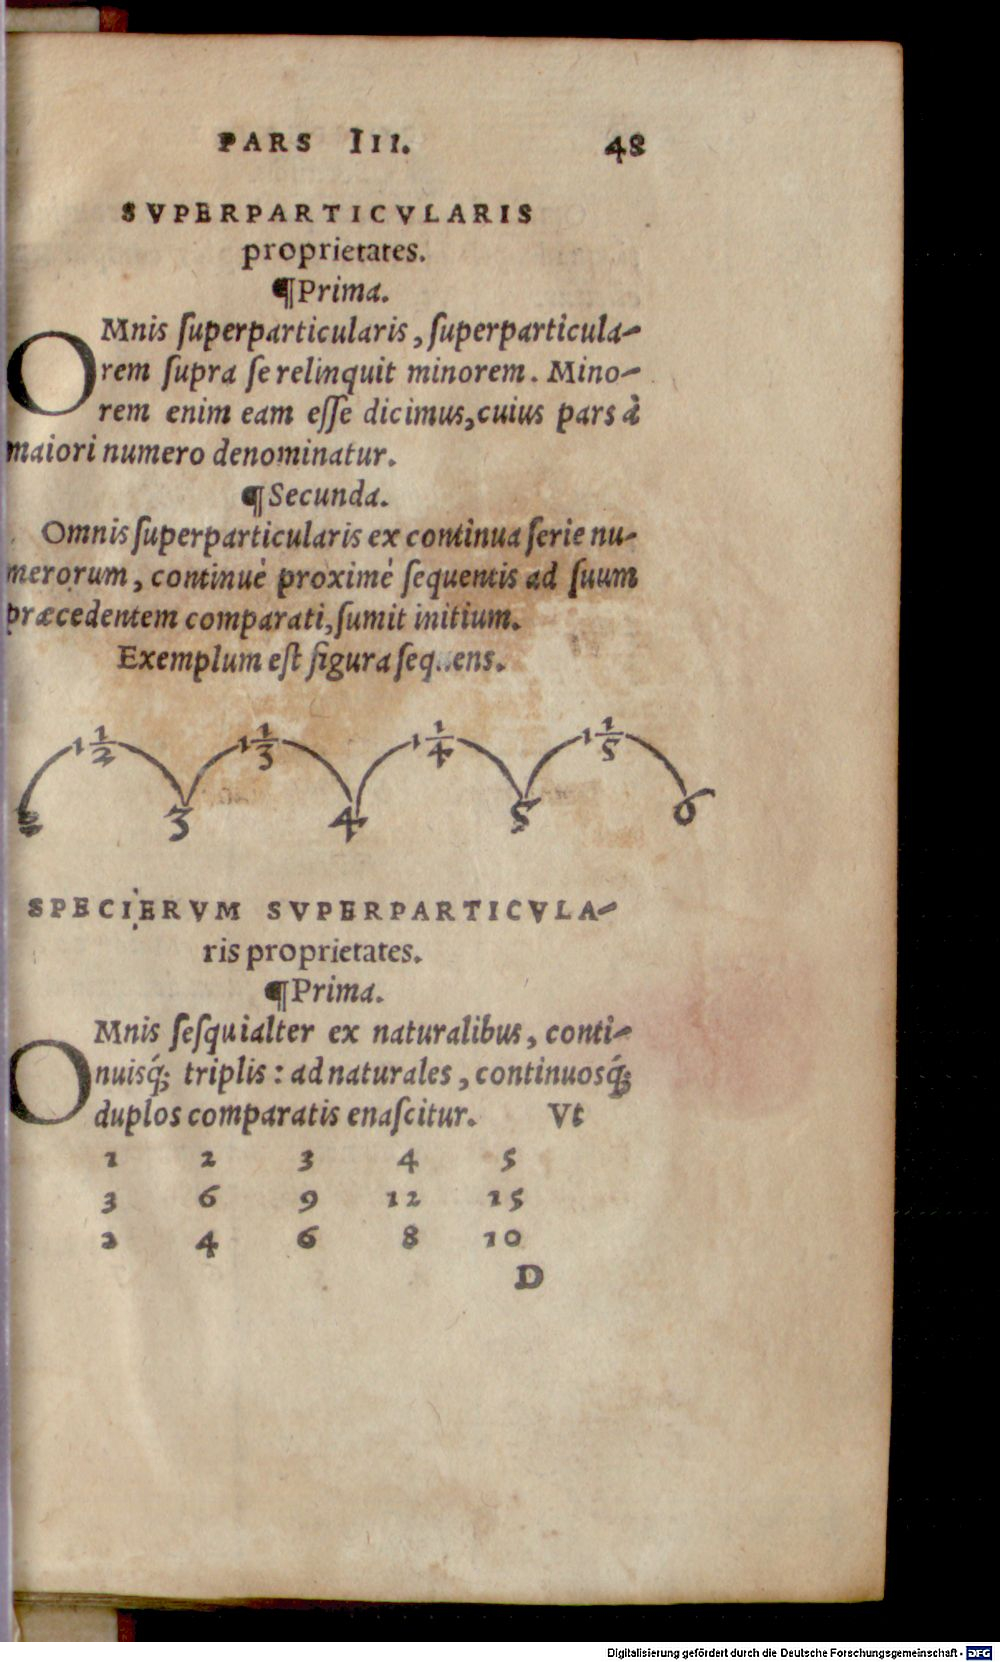 PARS III. 48
SVPERPARTICVLARIS
proprietates.
¶Prima.
OMnis ſuperparticularis, ſuperparticula-
rem ſupra ſe relinquit minorem. Mino-
rem enim eam eſſe dicimus, cuius pars à
maiori numero denominatur.
¶Secunda.
Omnis ſuperparticularis ex continua ſerie nu-
merorum, continuè proximè ſequentis ad ſuum
præcedentem comparati, ſumit initium.
Exemplum eſt figura ſeq..ens.
1 1/2 1 1/3 1 1/4 1 1/5
2 3 4 5 6
SPECIERVM SVPERPARTICVLA-
ris proprietates.
¶Prima.
OMnis ſeſquialter ex naturalibus, conti-
nuisq́; triplis: ad naturales, continuosq́;
duplos comparatis enaſcitur. Vt
1 2 3 4 5
3 6 9 12 15
2 4 6 8 10
D
Digitalisierung gefördert durch die Deutsche Forschungsgemeinschaft - DFG